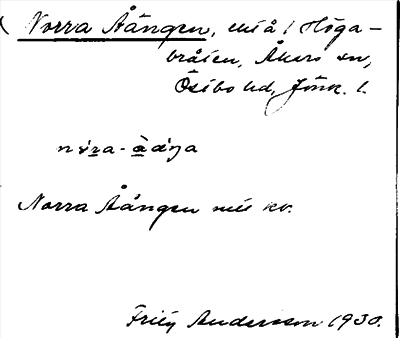 Norra Åängen, liå i Höga-
bråten, Åkers sn,
Östbo hd, Jönk. l.
Norra Åängen nu kv.
Frith Andersson 1930.